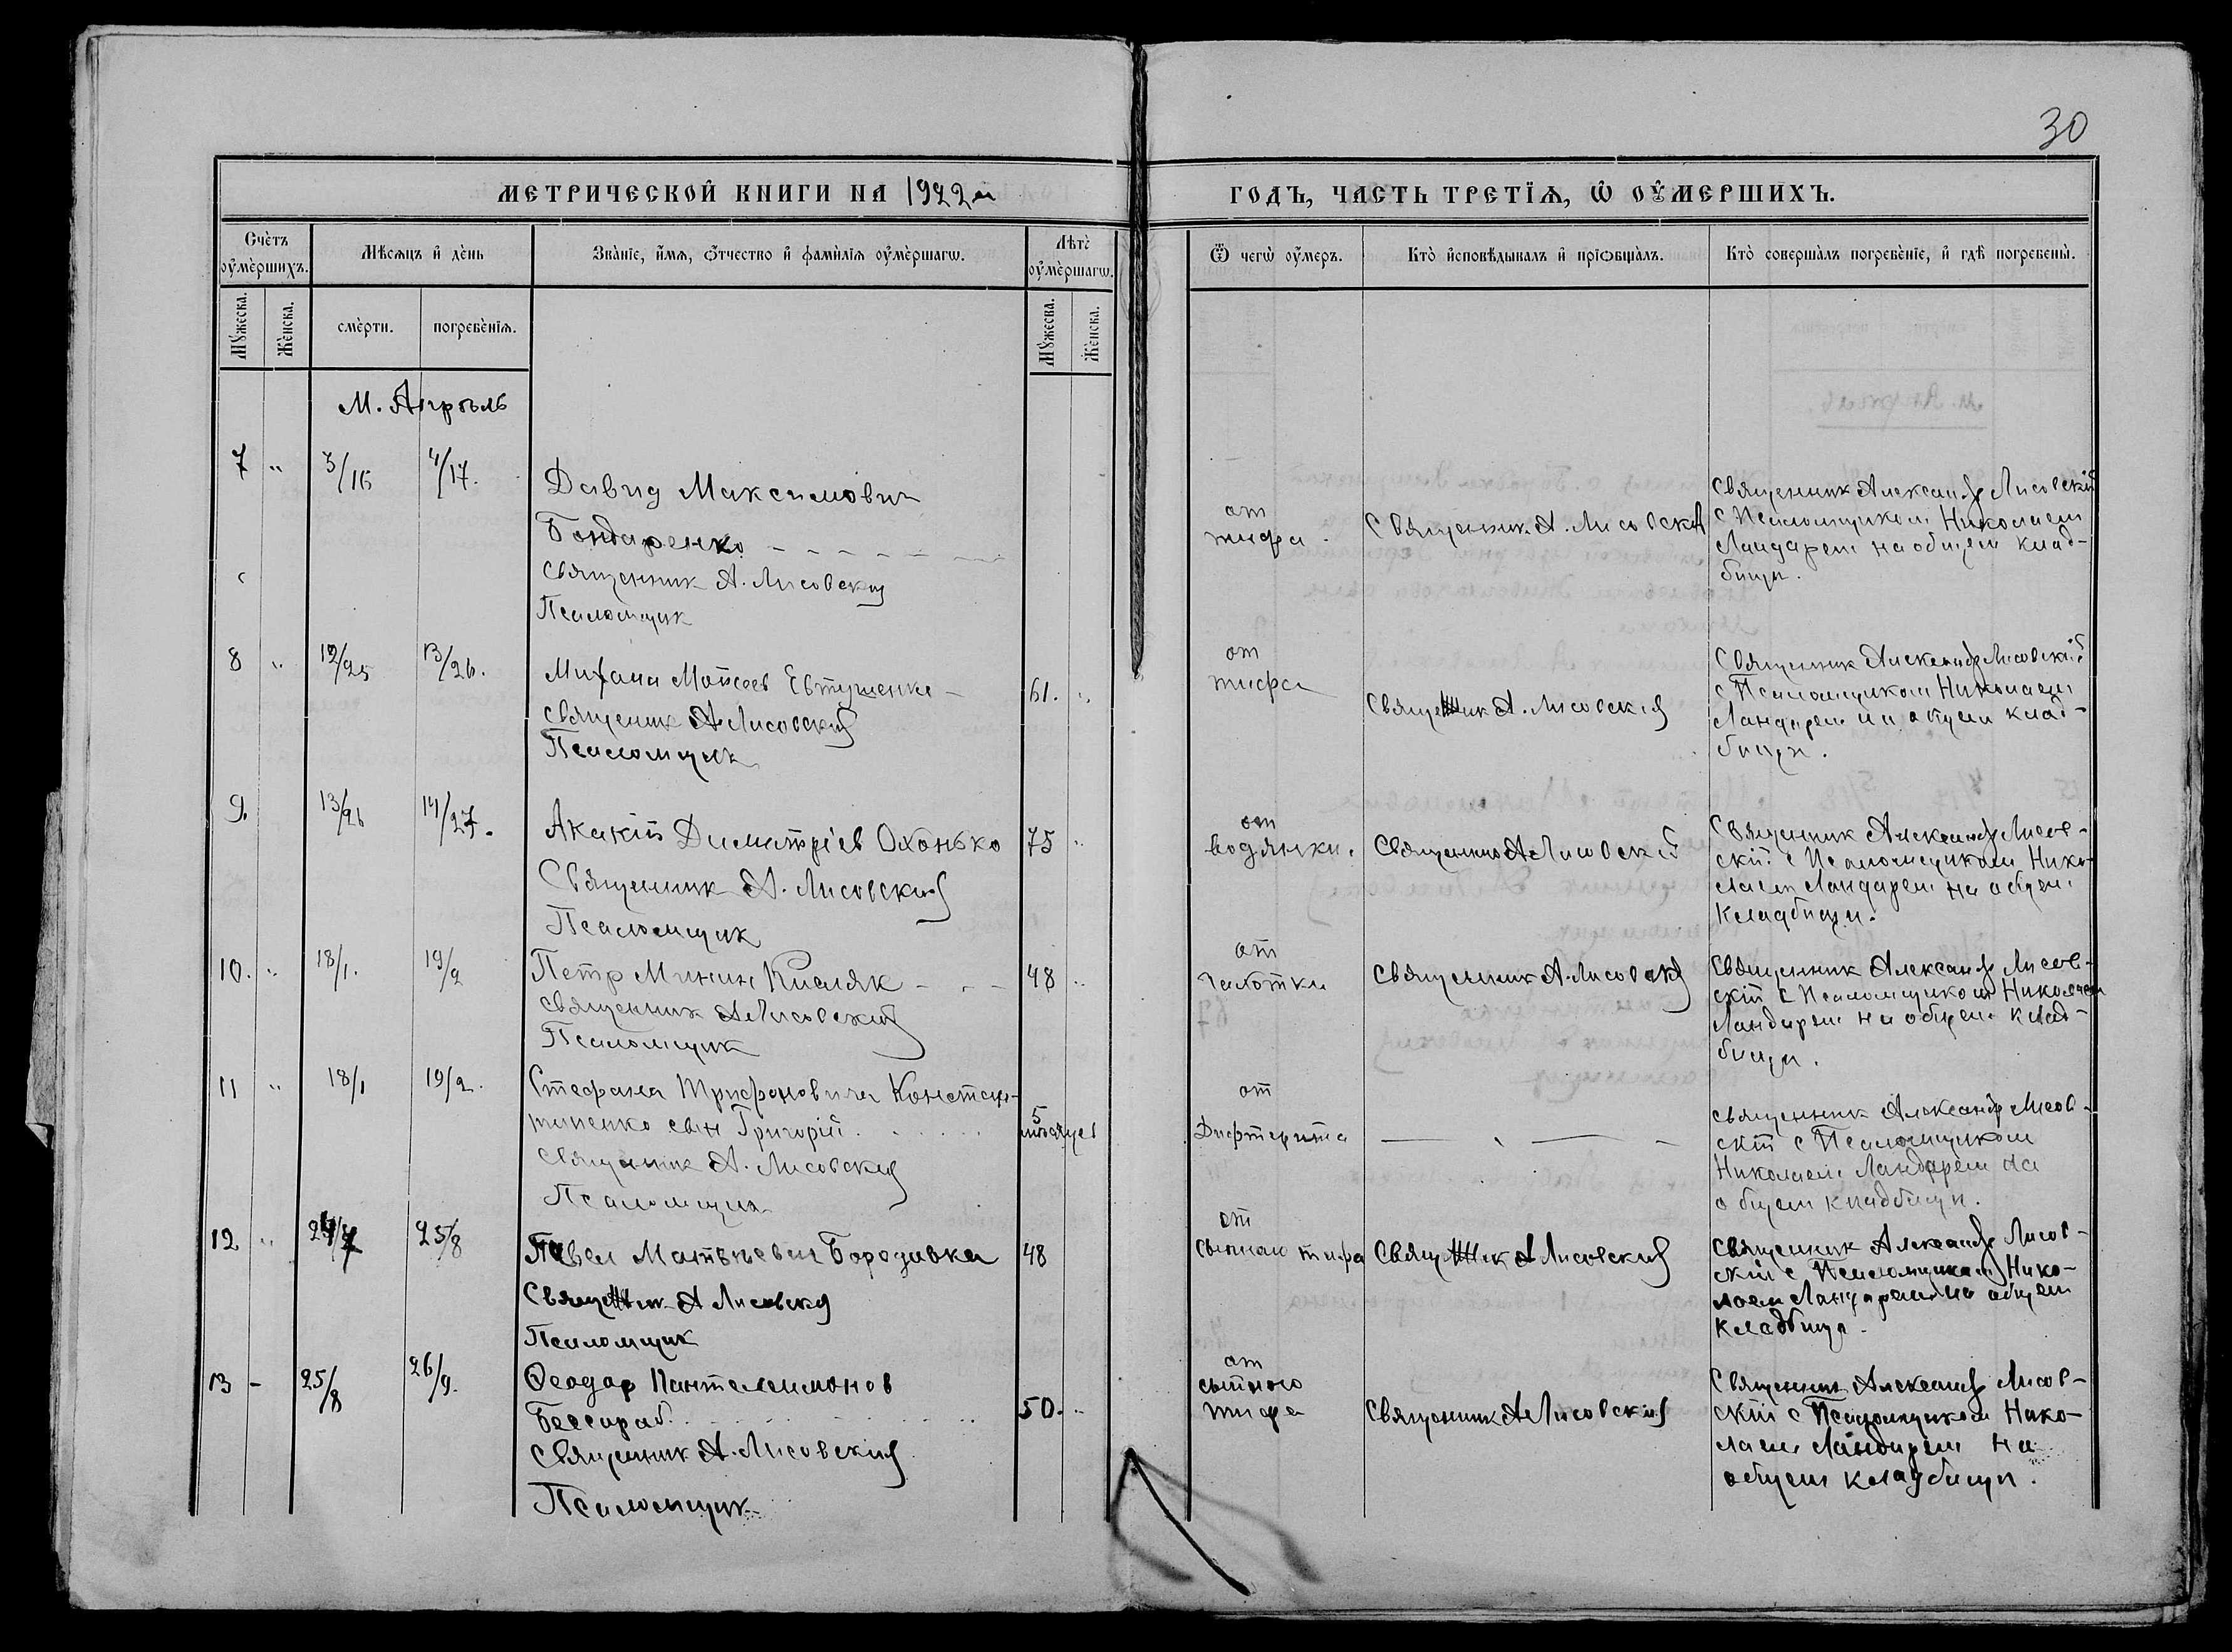 30
МЕТРИЧЕСКОЙ КНИГИ НА 1922 м
ГОДЪ, ЧАСТЬ ТРЕТЇѦ, Ѡ ОУМЕРШИХЪ.
Счетъ оумершихъ.
Мѣсяцъ и день
Званїе, имя, отчество и фамилїя оумершагѡ.
Лѣтѐ оумершагѡ.
Ѿ чегѡ оумеръ.
Кто исповѣдывалъ и прїобщалъ.
Кто совершалъ погребенїе, и гдѣ погребены.
Мужеска.
Женска.
смерти.
погребенїя.
Мужеска.
Женска.
М. Апрѣль
7 " 3/16 4/17.
Давид Максимович
Бондаренко
Священник А. Лисовский
Псаломщик
от
тифа
Священник А. Лисовский
Священник Александр Лисовскій
с Псаломщиком Николаем
Ландарем на общем клад-
бищи.
8 " 12/25 13/26.
Моисеев Евтушенко
61. "
Священик А Лисовский
Псаломщик
от
тифа
Священник А. Лисовский
Священник Александр Лисовскій
с Псаломщиком Николаем
Ландарем на общем клад-
бищи.
9. 13/26 14/27.
Акакій Димитріев Охонько 75 "
Священник А. Лисовский
Псаломщик
от
водянки.
Священник А Лисовский
Священник Александр Лисов-
скій с Псаломщиком Нико-
лаем Ландарем на общем
Кладбищи.
10. " 18/1. 19/2
Петр Минин Кисляк 48 "
Священник А Лисовский
Псаломщик
от
чахотки
Священник А. Лисовский
Священник Александр Лисов-
скій с Псаломщиком Николаем
Ландарем на общем клад-
бищи.
11 " 18/1 19/2.
Стефана Трифоновича Констан-
тиненко сын Григорій
5
месяцев
Священник А. Лисовский
Псаломщик
от
Дифтерита
Священник Александр Лисов-
скій с Псаломщиком
Николаем Ландарем на
общем кладбищи.
12 " 24/7 25/8
Павел Матвѣевич Бородавка 48
Священник А Лисовский
Псаломщик
от
сыпнаю тифа
Священник А Лисовский
Священник Александр Лисов-
скій с Псаломщиком Нико-
лаем Ландарем на общем
Кладбищи.
13 - 25/8 26/9.
Феодор Пантелеимонов
Бессараб. 50. "
Священник А. Лисовский
Псаломщик
от
сыпного
тифа
Священник А Лисовский
Священник Александр Лисов-
скій с Псаломщиком Нико-
лаем Ландарем на
общем кладбищи.